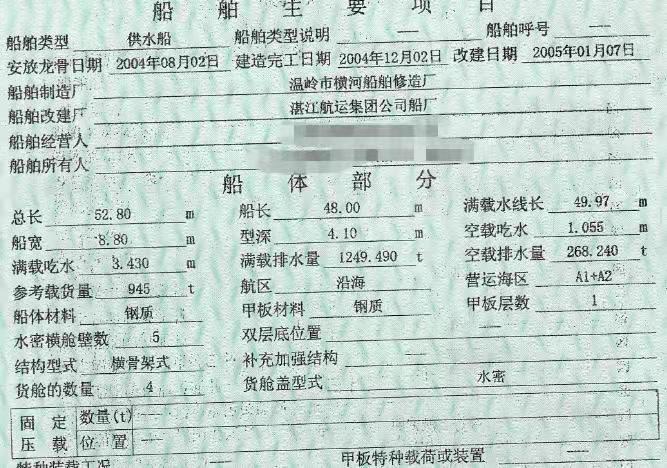 船舶主要项目
船舶类型 供水船 船舶类型说明 —— 船舶呼号 ——
安放龙骨日期 2004年08月02日 建造完工日期 2004年12月02日 改建日期 2005年01月07日
船舶制造厂 温岭市横河船舶修造厂
船舶改建厂 湛江航运集团公司船厂
船舶经营人
船舶所有人
船体部分
总长 52.80 m 船长 48.00 m 满载水线长 49.97 m
船宽 8.80 m 型深 4.10 m 空载吃水 1.055 m
满载吃水 3.430 m 满载排水量 1249.490 t 空载排水量 268.240 t
参考载货量 945 t 航区 沿海 营运海区 A1+A2
船体材料 钢质 甲板材料 钢质 甲板层数 1
水密横舱壁数 5 双层底位置 ——
结构型式 横骨架式 补充加强结构 ——
货舱的数量 4 货舱盖型式 水密
固定 数量(t) ——
压载 位置 ——
特种装载工况 甲板特种载荷或装置 ——